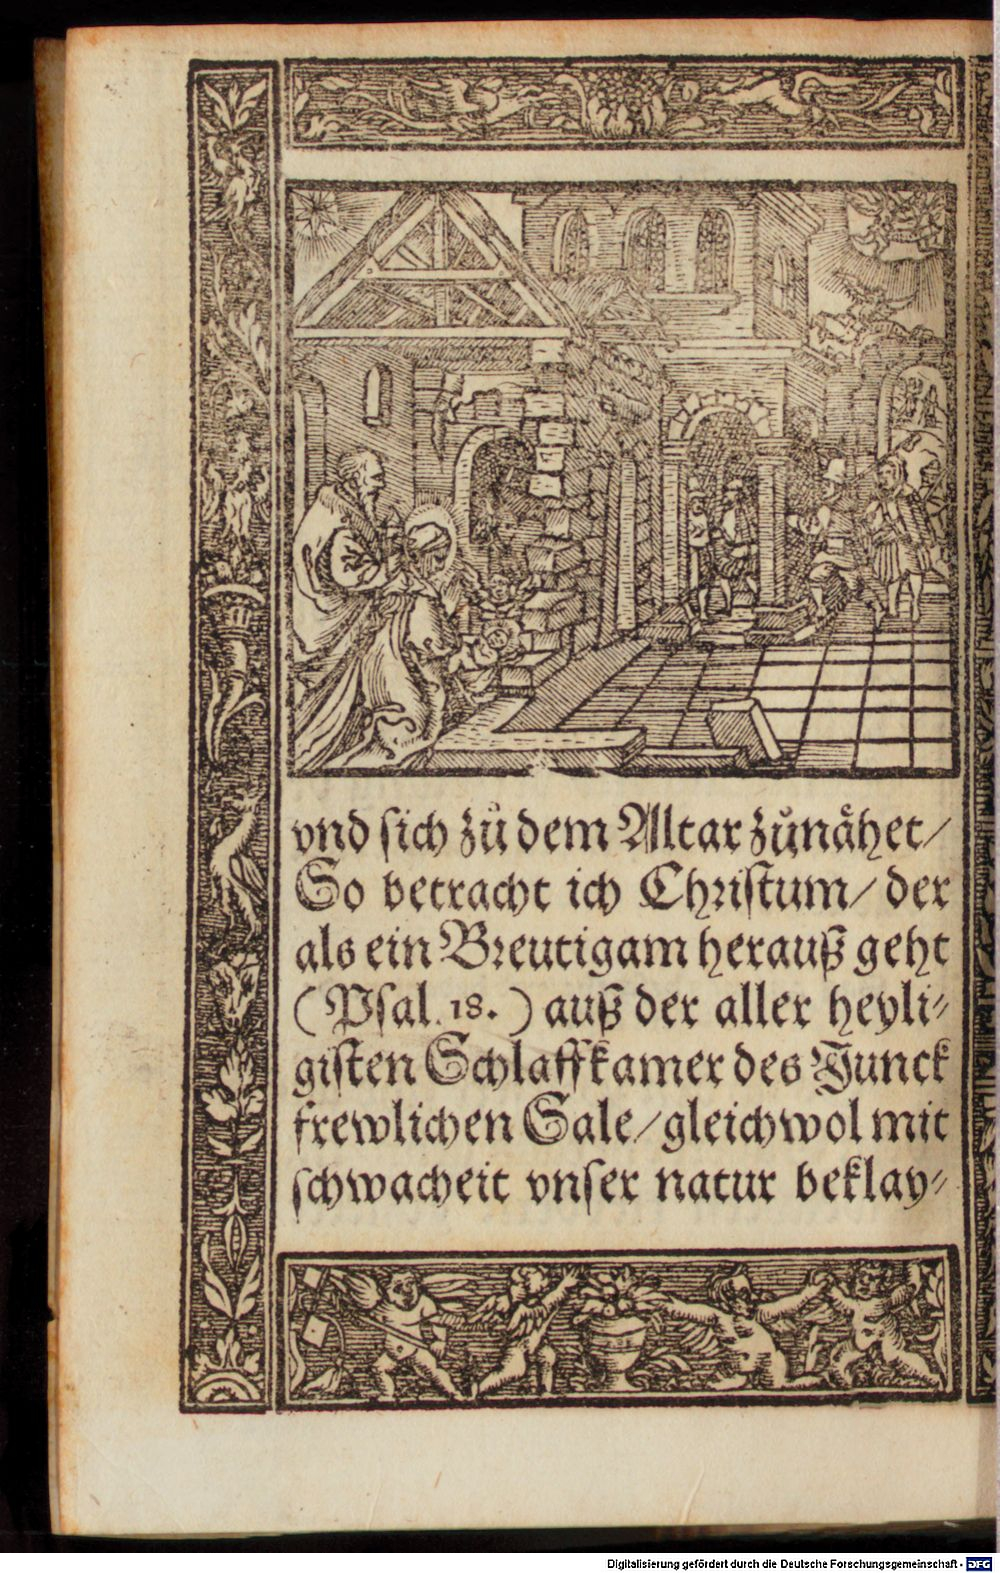 vnd sich zů dem Altar zůnähet/
So betracht ich Christum/ der
als ein Breutigam herauß geht
(Psal. 18.) auß der aller heyli⸗
gisten Schlaffkamer des Junck
frewlichen Sale/ gleichwol mit
schwacheit vnser natur beklay⸗
Digitalisierung gefördert durch die Deutsche Forschungsgemeinschaft - DFG